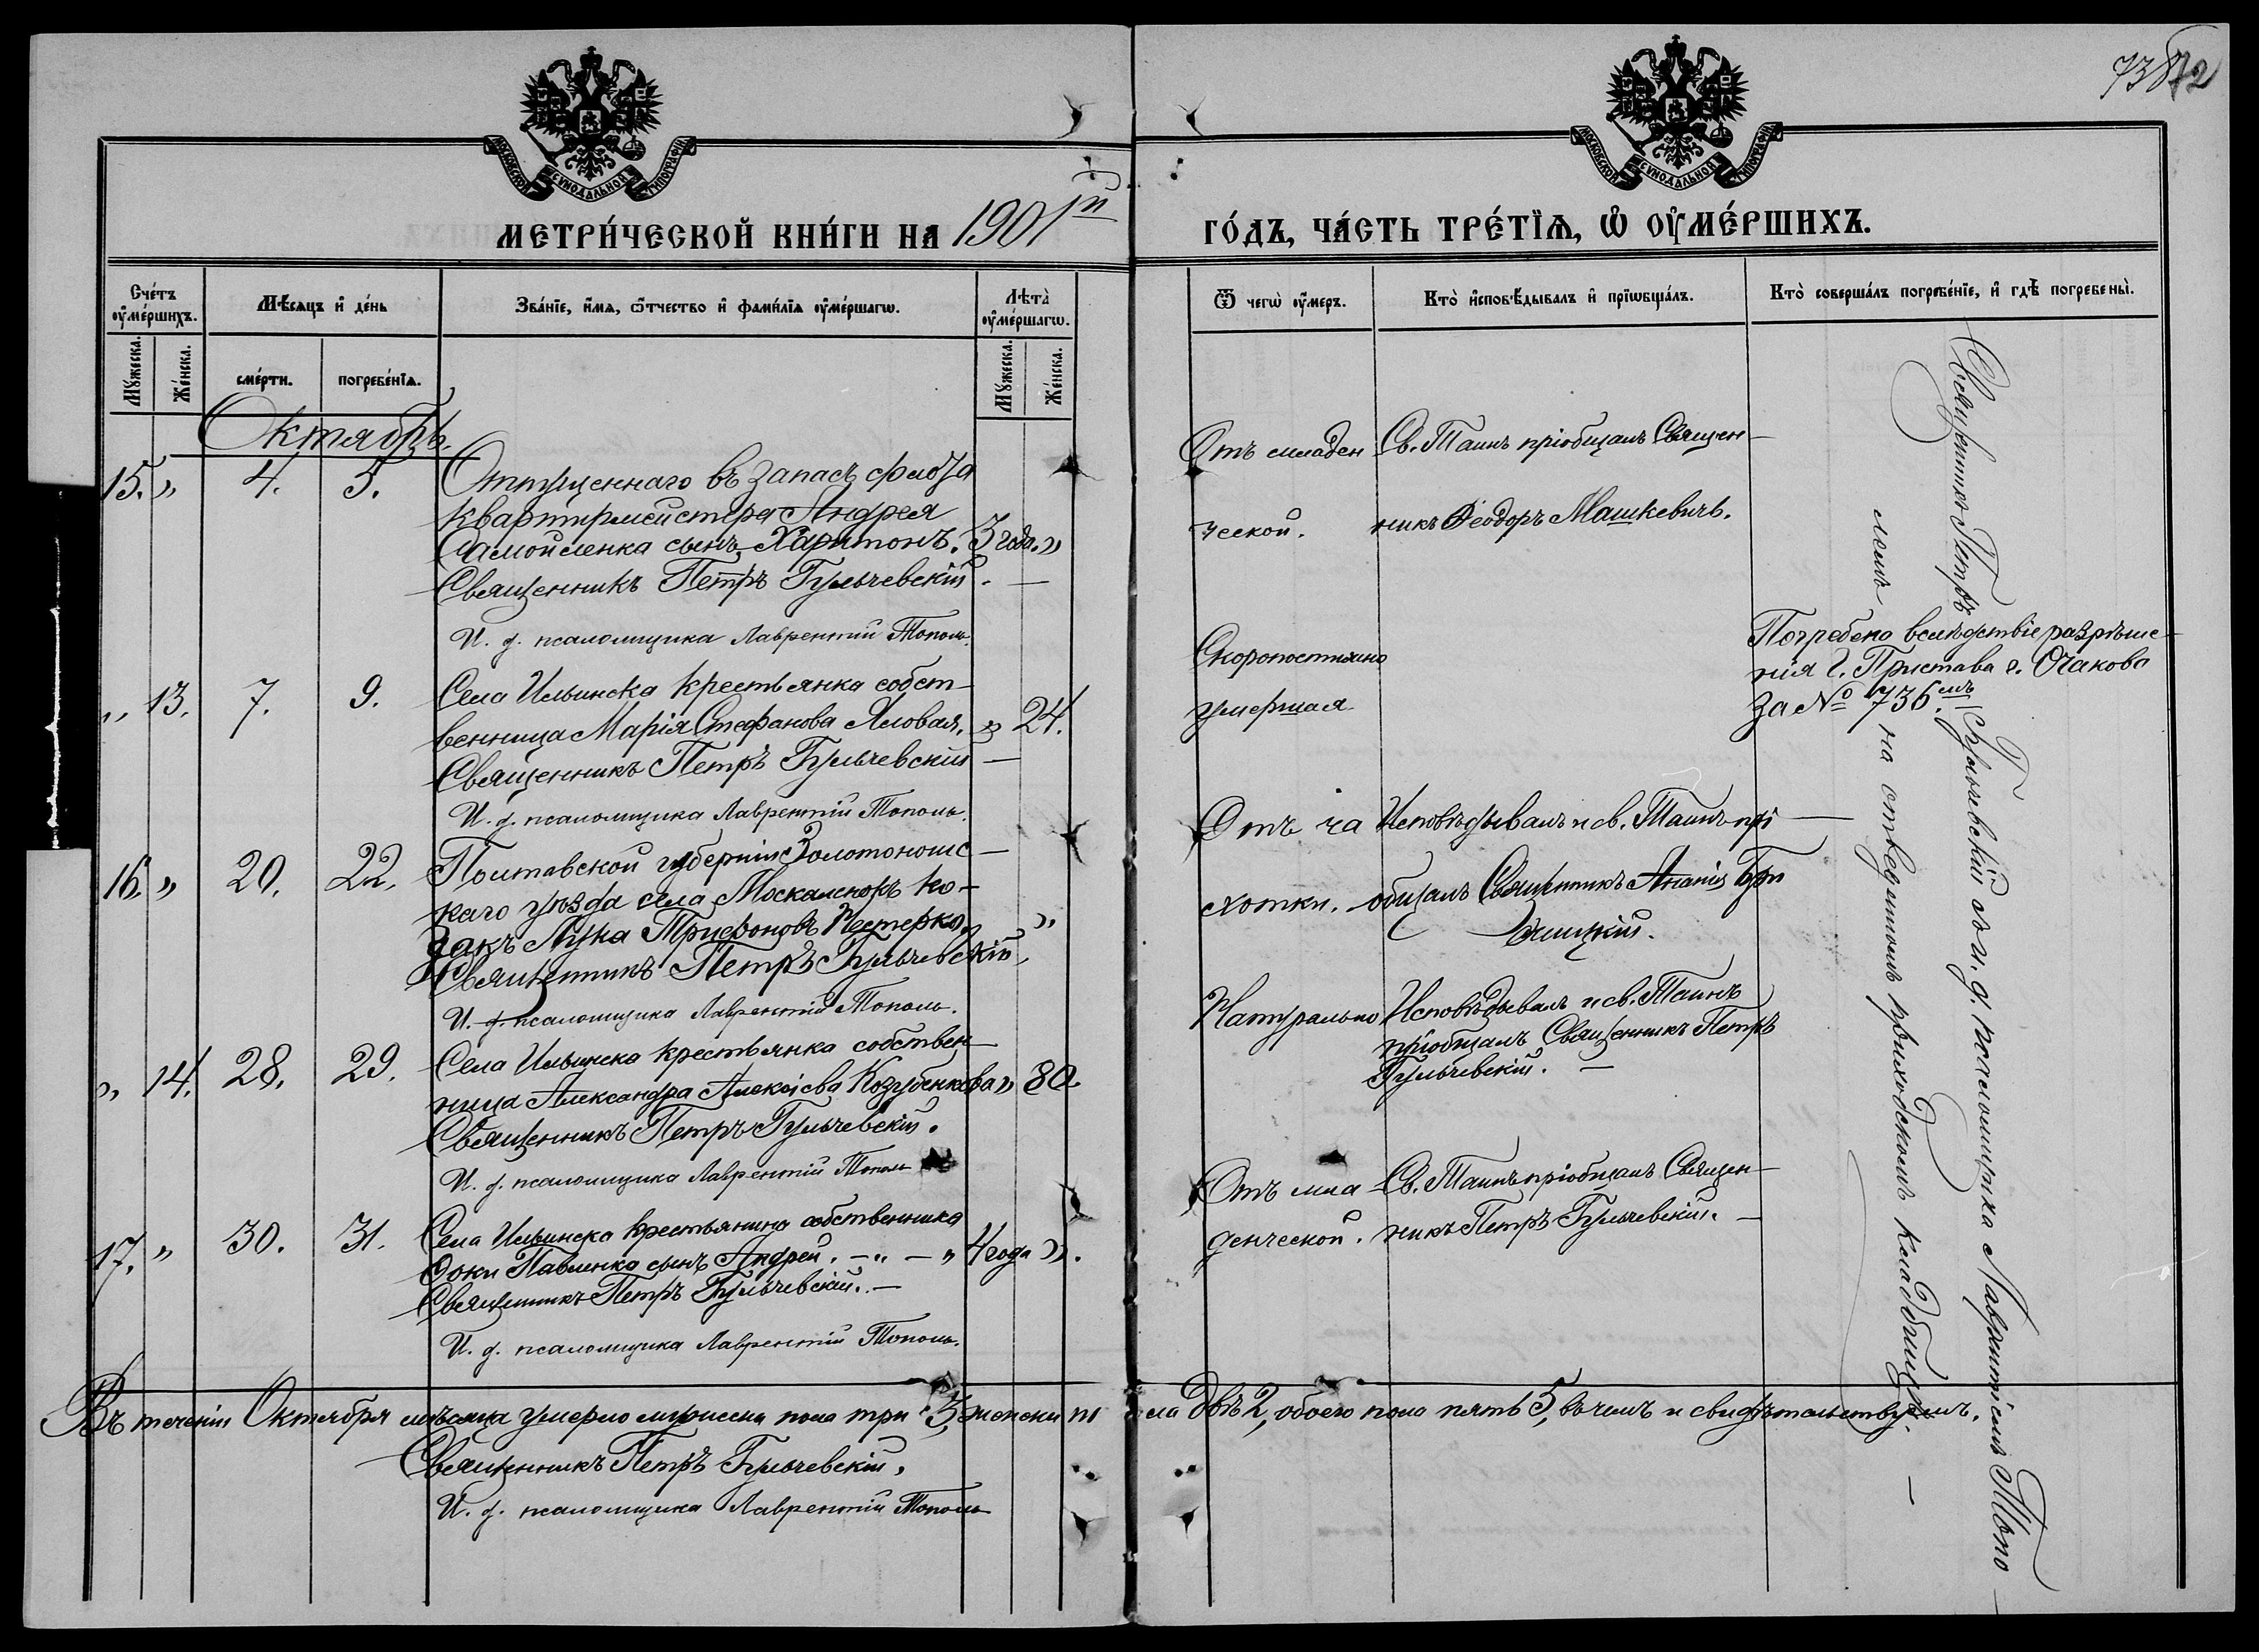 73872
МОСКОВСКОЙ СУНОДАЛЬНОЙ ТИПОГРАФІИ
МОСКОВСКОЙ СУНОДАЛЬНОЙ ТИПОГРАФІИ
МЕТРИ́ЧЕСКОЙ КНИ́ГИ НА 1901й
ГО́ДЪ, ЧА́СТЬ ТРЕ́ТЇѦ, Ѡ҆ ОУ҆МЕ́РШИХЪ.
Сче́тъ оу҆ме́ршихъ.
Мꙋжеска.
Же́нска.
Мѣ́сѧцъ и҆ де́нь
сме́рти.
погребе́нїѧ.
Зва́нїе, и҆́мѧ, ѻ҆́тчество и҆ фами́лїѧ оу҆ме́ршагѡ.
Лѣта̀ оу҆ме́ршагѡ.
Мꙋжеска.
Же́нска.
Ѿ чегѡ̀ оу҆́меръ.
Кто̀ и҆сповѣ́дывалъ и҆ прїѡбща́лъ.
Кто̀ соверша́лъ погребе́нїе, и҆ гдѣ̀ погребены̀.
Октябрь.
15. „ 4. 5. Отпущеннаго въ запасъ флота
квартирмейстера Андрея
Самойленка сынъ Харитонъ. 3 года. „
Священникъ Петръ Гульчевскій. —
И. д. псаломщика Лаврентій Тополь.
Отъ младен
ческой.
Св. Таинъ пріобщалъ Священ-
никъ Ѳеодоръ Машкевичъ.
„ 13. 7. 9. Села Ильинска крестьянка собст-
венница Марія Стефанова Яловая. „ 24.
Священникъ Петръ Гульчевскій —
И. д. псаломщика Лаврентій Тополь.
Скоропостижно
умершая
Погребено вслѣдствіе разрѣше-
нія г. Пристава г. Очакова
за № 736.мъ
16. „ 20. 22. Полтавской губерніи Золотоношс-
каго уѣзда села Москаленокъ ко-
закъ Лука Трифоновъ Нестерко „
Священникъ Петръ Гульчевскій.
И. д. псаломщика Лаврентій Тополь.
Отъ ча
хотки.
Исповѣдывалъ и св. Таинъ прі —
общалъ Священникъ Ананія
„ 14. 28. 29. Села Ильинска крестьянка собствен-
ница Александра Алексіева Козубенкова „ 80.
Священникъ Петръ Гульчевскій.
И. д. псаломщика Лаврентій Тополь
Натурально
Исповѣдывалъ и св. Таинъ
пріобщалъ Священникъ Петръ
Гульчевскій. —
17. „ 30. 31. Села Ильинска крестьянина собственника
Павленка сынъ Андрей. — „ — „ 4 года „.
Священникъ Петръ Гульчевскій. —
И. д. псаломщика Лаврентій Тополь.
Отъ мла-
денческой.
Св. Таинъ пріобщалъ Священ-
никъ Петръ Гульчевскій. —
Священникъ Петръ Гульчевскій съ и. д. псаломщика Лаврентіемъ Топо-
лемъ на отведенномъ приходскомъ кладбищѣ. —
Въ теченіи Октября мѣсяца умерло мужеска пола три 3, женска пола двѣ 2, обоего пола пять 5, въ чемъ и свидѣтельствуемъ.
Священникъ Петръ Гульчевскій.
И. д. псаломщика Лаврентій Тополь